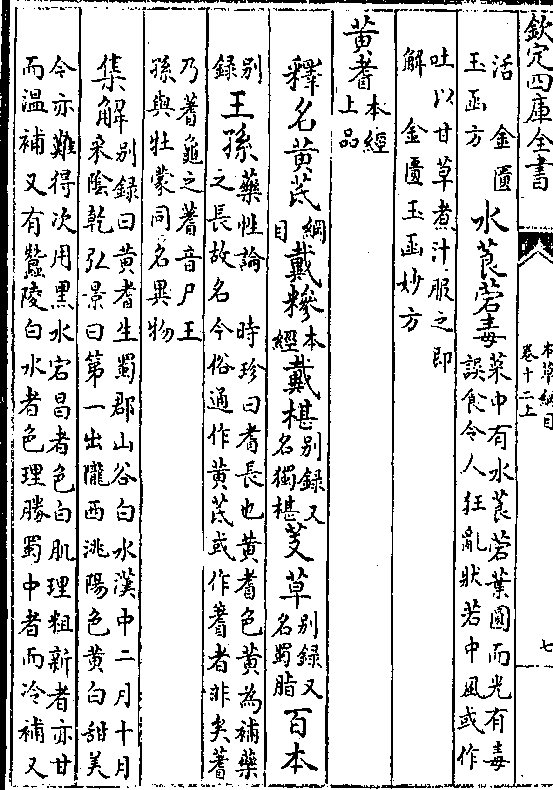 欽定四庫全書
本草綱目
卷十二上
七
活　金匱
玉函方
水莨菪毒
菜中有水莨菪葉圓而光有毒
誤食令人狂亂狀若中風或作
吐以甘草煮汁服之即
解　金匱玉函妙方
黄耆
本經
上品
釋名黄芪
綱
目
戴糝
本
經
戴椹
别録又
名獨椹
芰草
别録又
名蜀脂
百本
别
録
王孫
藥性論　時珍曰耆長也黄耆色黄為補藥
之長故名今俗通作黄芪或作蓍者非矣蓍
乃蓍龜之蓍音尸王
孫與牡蒙同名異物
集解
别録曰黄耆生蜀郡山谷白水漢中二月十月
采陰乾弘景曰第一出隴西洮陽色黄白甜美
今亦難得次用黑水宕昌者色白肌理粗新者亦甘
而温補又有蠶陵白水者色理勝蜀中者而冷補又